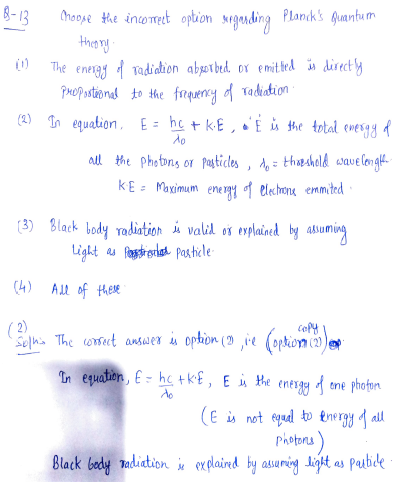 Q-13 Choose the incorrect option regarding Planck's Quantum
theory.
(1) The energy of radiation absorbed or emitted is directly
proportional to the frequency of radiation.
(2) In equation. E = hc/λ₀ + K.E, E is the total energy of
all the photons or particles, λ₀ = threshold wavelength
KE = Maximum energy of electrons emmited.
(3) Black body radiation is valid or explained by assuming
light as particle.
(4) All of these
(2)
Solⁿ:- The correct answer is option (2), i.e (option (2)) copy
In equation, E = hc/λ₀ + K.E, E is the energy of one photon
(E is not equal to energy of all
photons)
Black body radiation is explained by assuming light as particle.